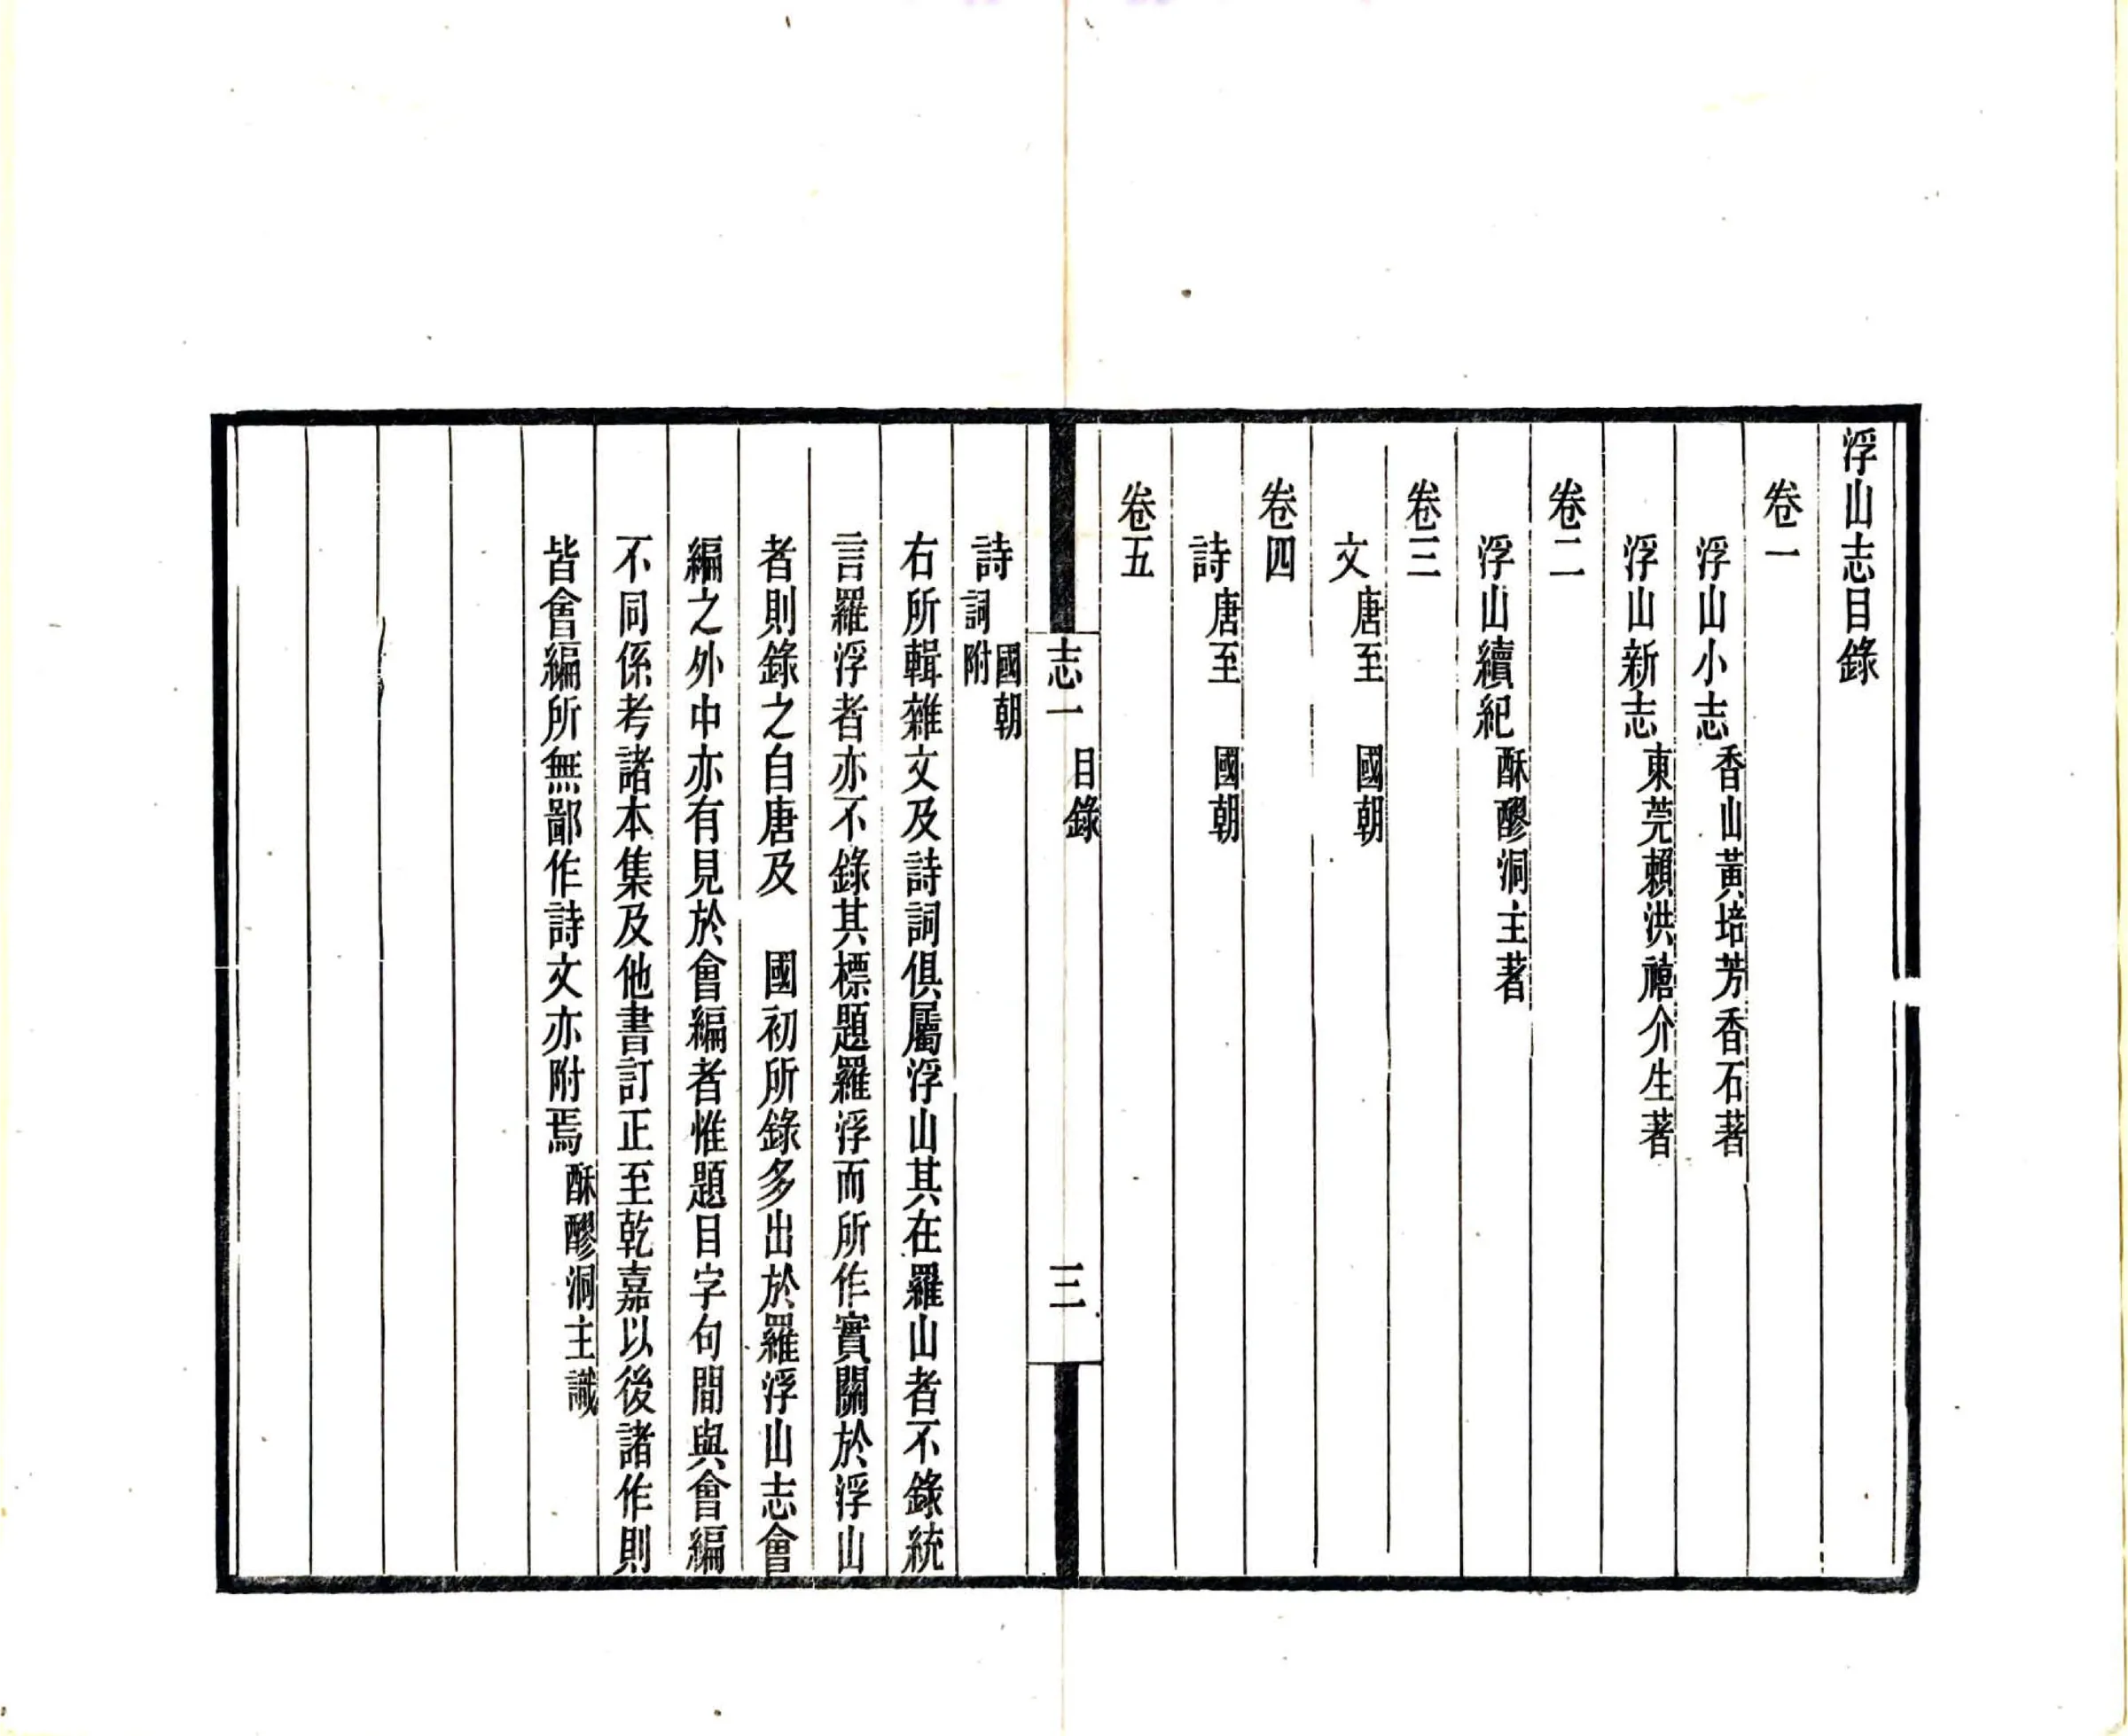 浮山志目錄
卷一
浮山小志香山黃培芳香石著
浮山新志東莞賴洪禧介生著
卷二
浮山續紀酥醪洞主著
卷三
文唐至 國朝
卷四
詩唐至 國朝
卷五
志一 目錄 三
詩國朝詞附
右所輯雜文及詩詞俱屬浮山其在羅山者不錄統
言羅浮者亦不錄其標題羅浮而所作實關於浮山
者則錄之自唐及 國初所錄多出於羅浮山志會
編之外中亦有見於會編者惟題目字句間與會編
不同係考諸本集及他書訂正至乾嘉以後諸作則
皆會編所無鄙作詩文亦附焉酥醪洞主識